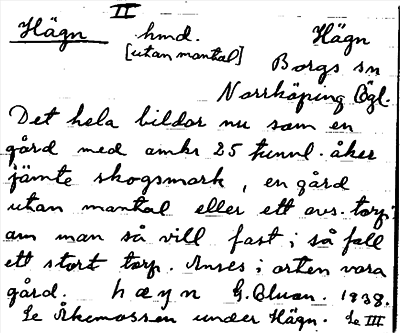 II
Hägn hmd. Hägn
[utan mantal] Borgs sn
Norrköping Ögl.
Det hela bildar nu som en
gård med omkr 25 tunnl. åker
jämte skogsmark, en gård
utan mantal eller ett avs. torp
om man så vill fast i så fall
ett stort torp. Anses i orten vara
gård. hægn G. Bluan. 1938.
Se Åkemossen under Hägn. Se III